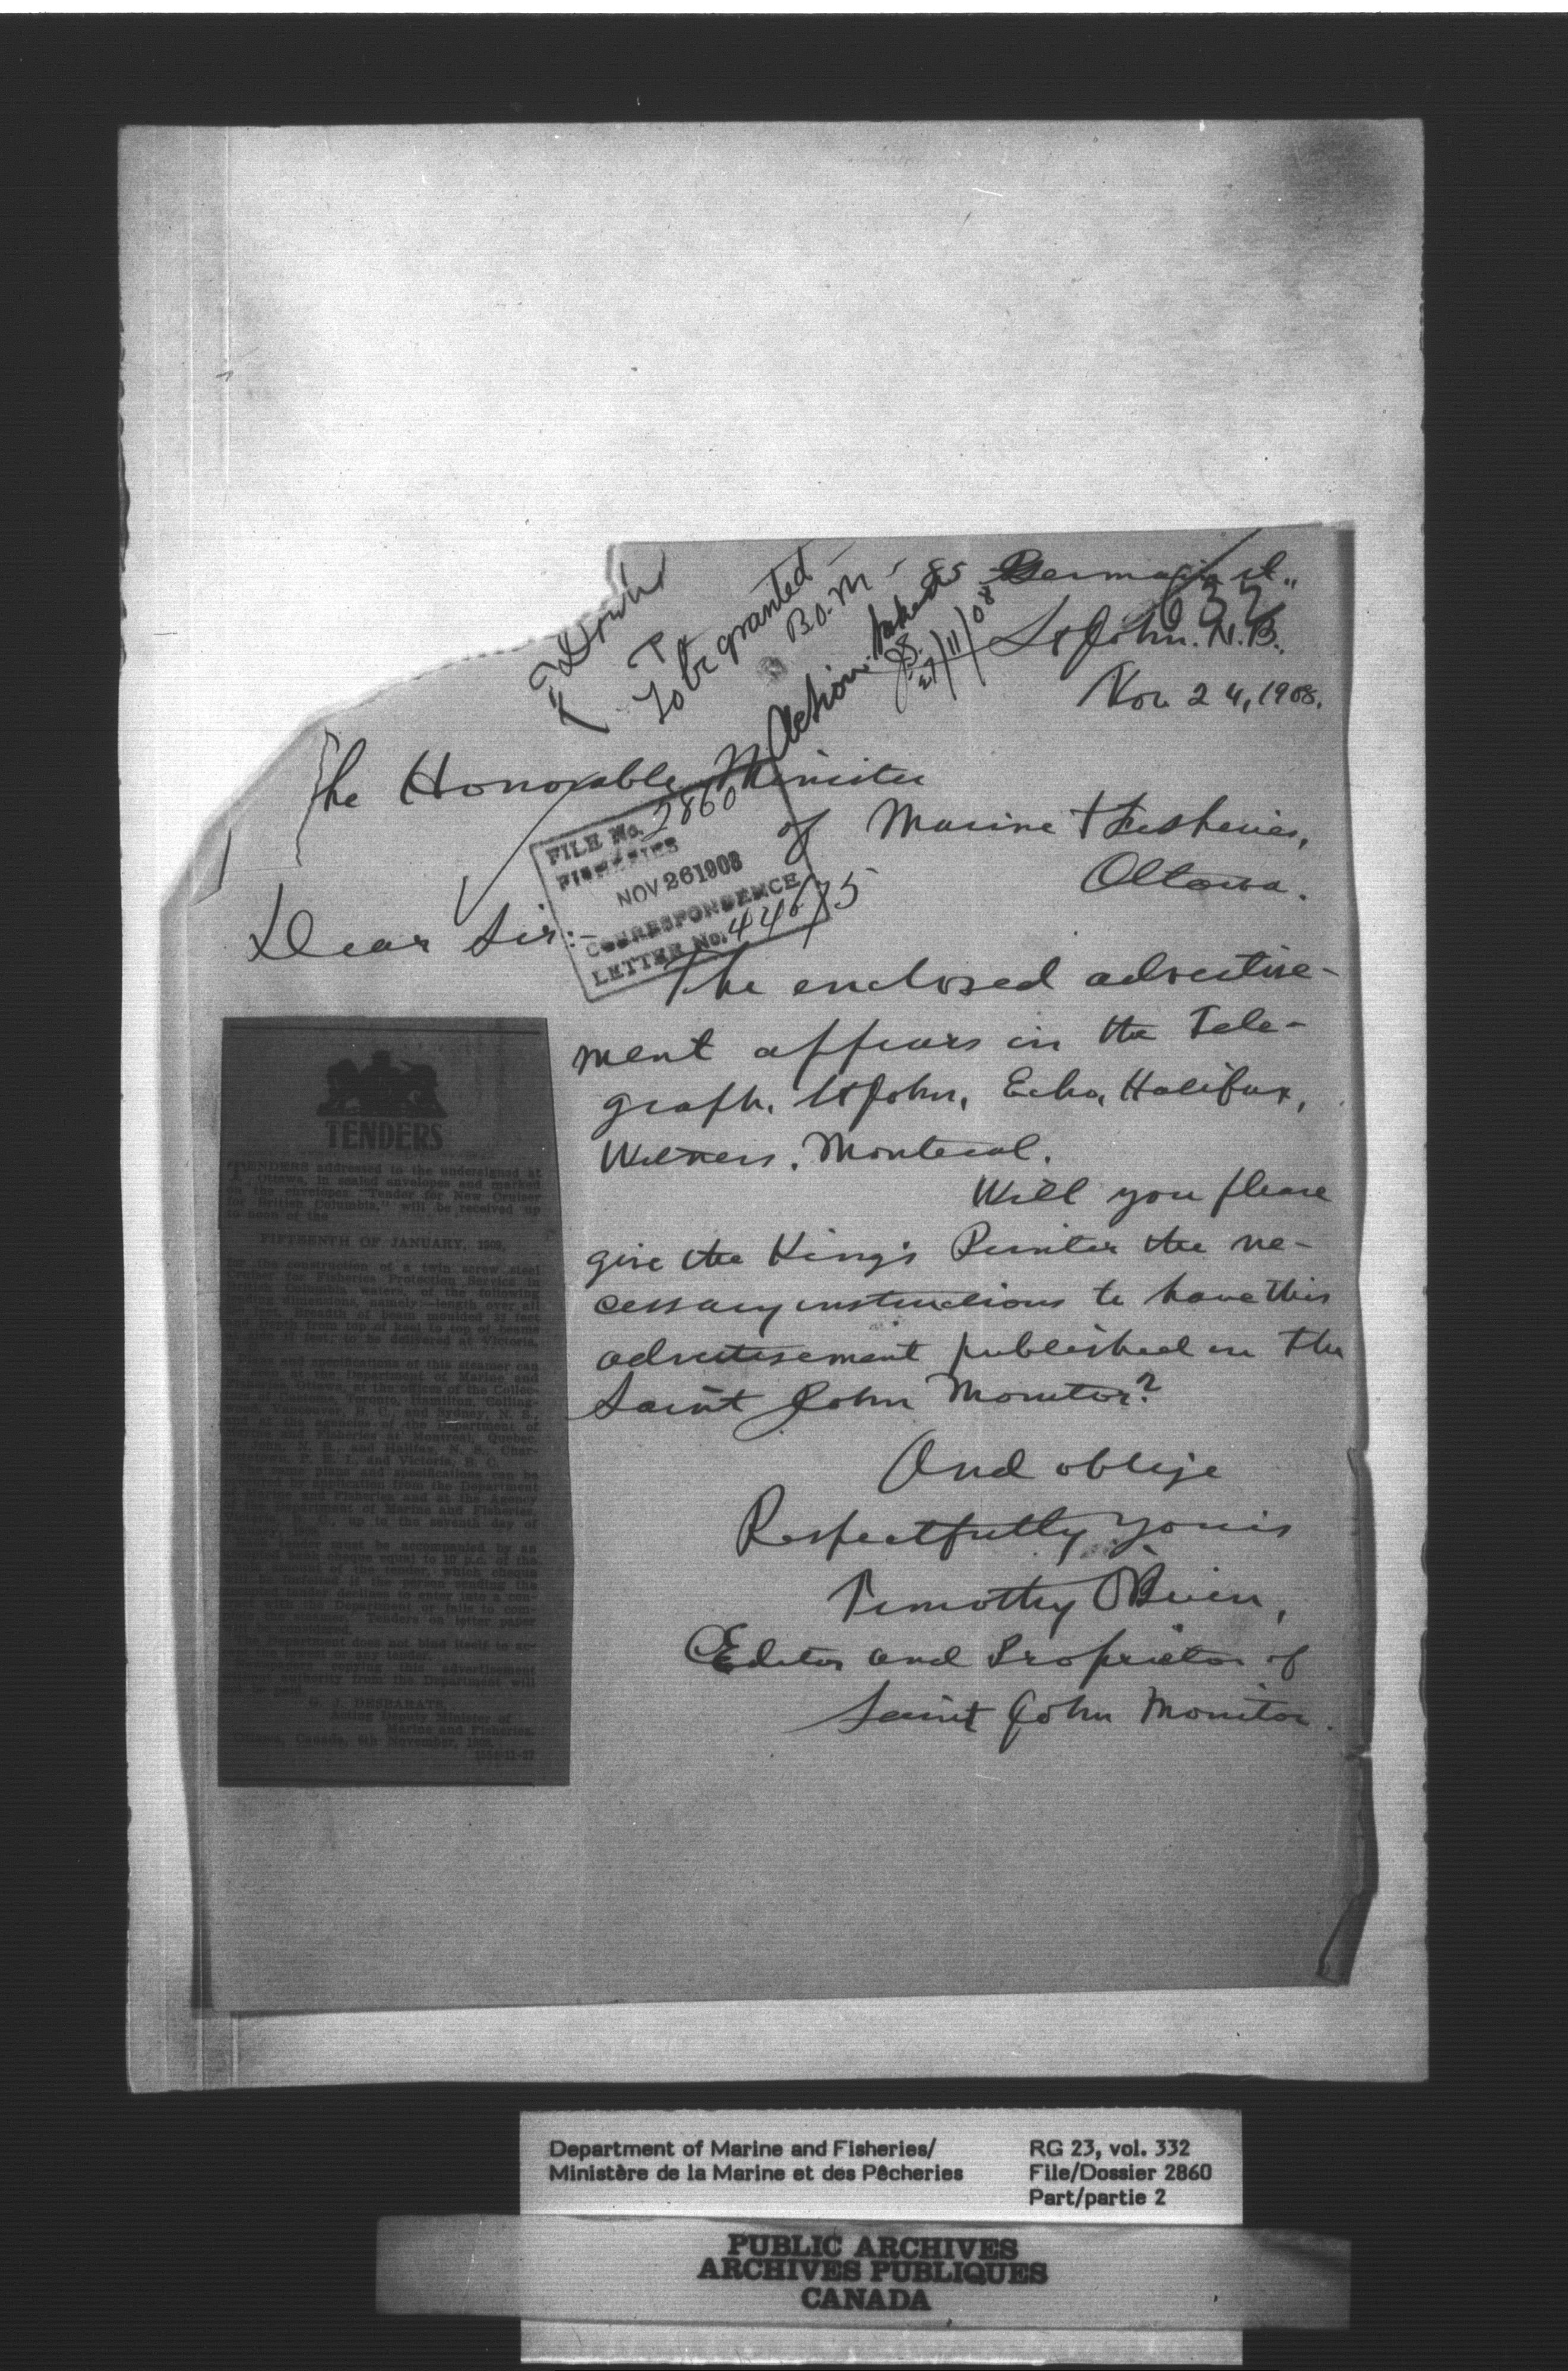 To be granted
B.O.M.
Action taken
27/11/08
85 Germain st.,
632
St John. N.B.,
Nov 24, 1908.
The Honorable Minister
of Marine & Fisheries,
Ottawa.
FILE No. 2860
FISHERIES
NOV 26 1908
CORRESPONDENCE
LETTER No. 44675
Dear Sir:-
The enclosed advertise-
ment appears in the Tele-
graph, St John, Echo, Halifax,
Witness, Montreal.
Will you please
give the King's Printer the ne-
cessary instructions to have this
advertisement published in the
Saint John Monitor?
And oblige
Respectfully yours
Timothy O'Brien,
Editor and Proprietor of
Saint John Monitor.
TENDERS
TENDERS addressed to the undersigned at
Ottawa, in sealed envelopes and marked
on the envelopes "Tender for New Cruiser
for British Columbia," will be received up
to noon of the
FIFTEENTH OF JANUARY, 1909,
for the construction of a twin screw steel
Cruiser for Fisheries Protection Service in
British Columbia waters, of the following
leading dimensions, namely:—length over all
feet. Breadth of beam moulded 27 feet
and Depth from top of keel to top of beams
at side 17 feet; to be delivered at Victoria,
B. C.
Plans and specifications of this steamer can
be seen at the Department of Marine and
Fisheries, Ottawa, at the offices of the Collec-
tors of Customs, Toronto, Hamilton, Colling-
wood, Vancouver, B. C., and Sydney, N. S.,
and at the agencies of the Department of
Marine and Fisheries at Montreal, Quebec,
St. John, N. B., and Halifax, N. S., Char-
lottetown, P. E. I., and Victoria, B. C.
The same plans and specifications can be
procured by application from the Department
of Marine and Fisheries and at the Agency
of the Department of Marine and Fisheries,
Victoria, B. C., up to the seventh day of
January, 1909.
Each tender must be accompanied by an
accepted bank cheque equal to 10 p.c. of the
whole amount of the tender, which cheque
will be forfeited if the person sending the
accepted tender declines to enter into a con-
tract with the Department or fails to com-
plete the steamer. Tenders on letter paper
will be considered.
The Department does not bind itself to ac-
cept the lowest or any tender.
Newspapers copying this advertisement
without authority from the Department will
not be paid.
G. J. DESBARATS,
Acting Deputy Minister of
Marine and Fisheries.
Ottawa, Canada, 6th November, 1908.
1554-11-27
Department of Marine and Fisheries/
Ministère de la Marine et des Pêcheries
RG 23, vol. 332
File/Dossier 2860
Part/partie 2
PUBLIC ARCHIVES
ARCHIVES PUBLIQUES
CANADA